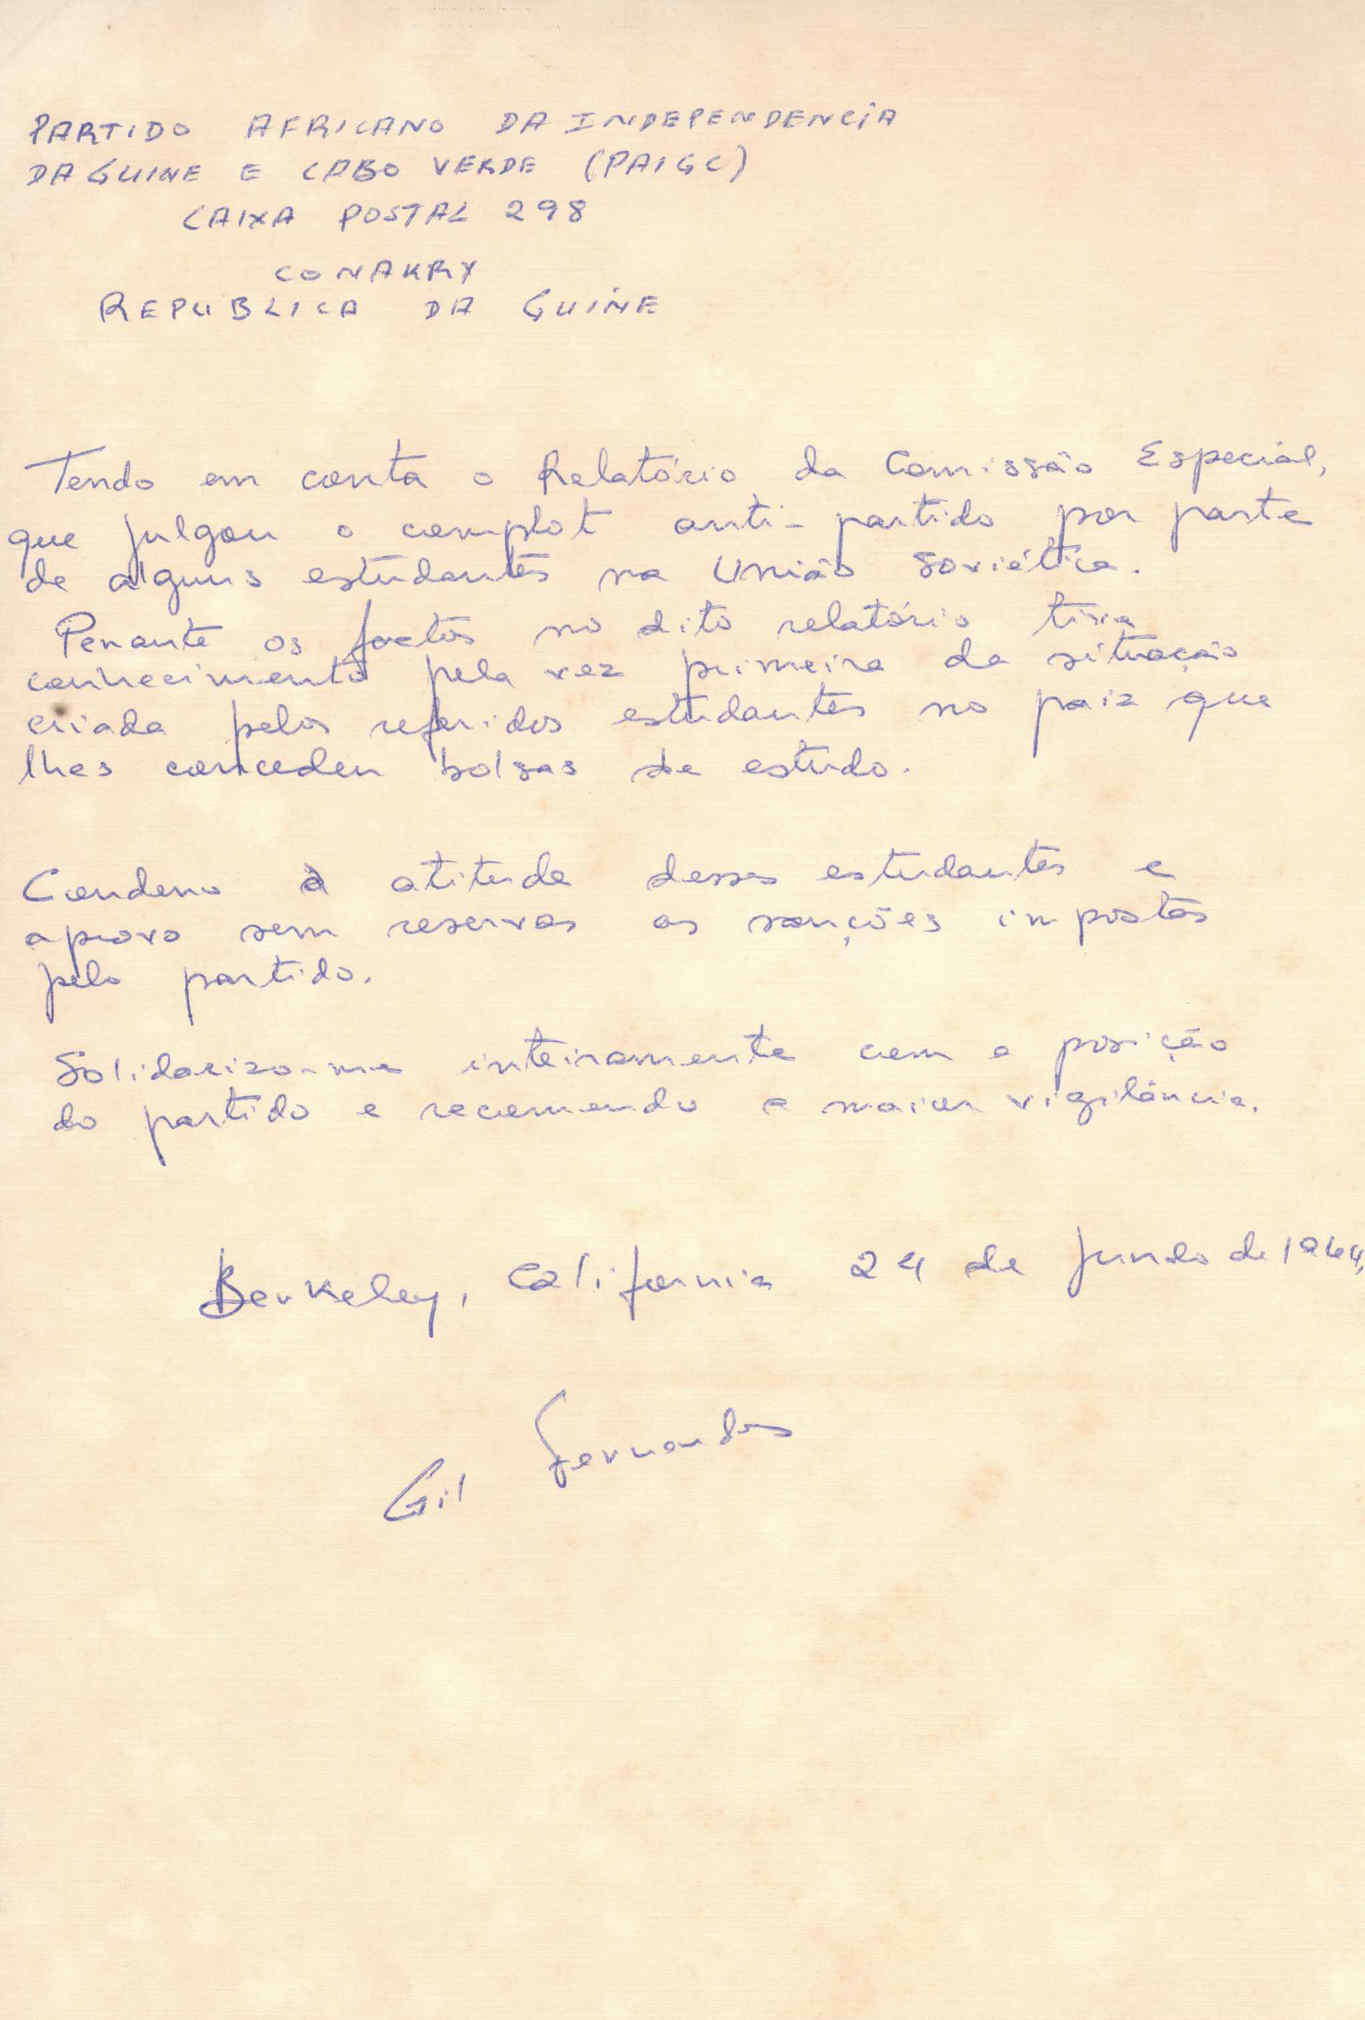 PARTIDO AFRICANO DA INDEPENDENCIA
DA GUINE E CABO VERDE (PAIGC)
CAIXA POSTAL 298
CONAKRY
REPUBLICA DA GUINE
Tendo em conta o Relatório da Comissão Especial,
que julgou o complot anti-partido por parte
de alguns estudantes na União Soviética.
Perante os factos no dito relatório tive
conhecimento pela vez primeira da situação
criada pelos referidos estudantes no paiz que
lhes conceden bolsas de estudo.
Condeno a atitude desses estudantes e
aprovo sem reservas as sanções impostas
pelo partido.
Solidarizo-me inteiramente com a posição
do partido e recomendo a maior vigilância.
Berkeley, California 24 de Junho de 1964,
Gil Fernandes